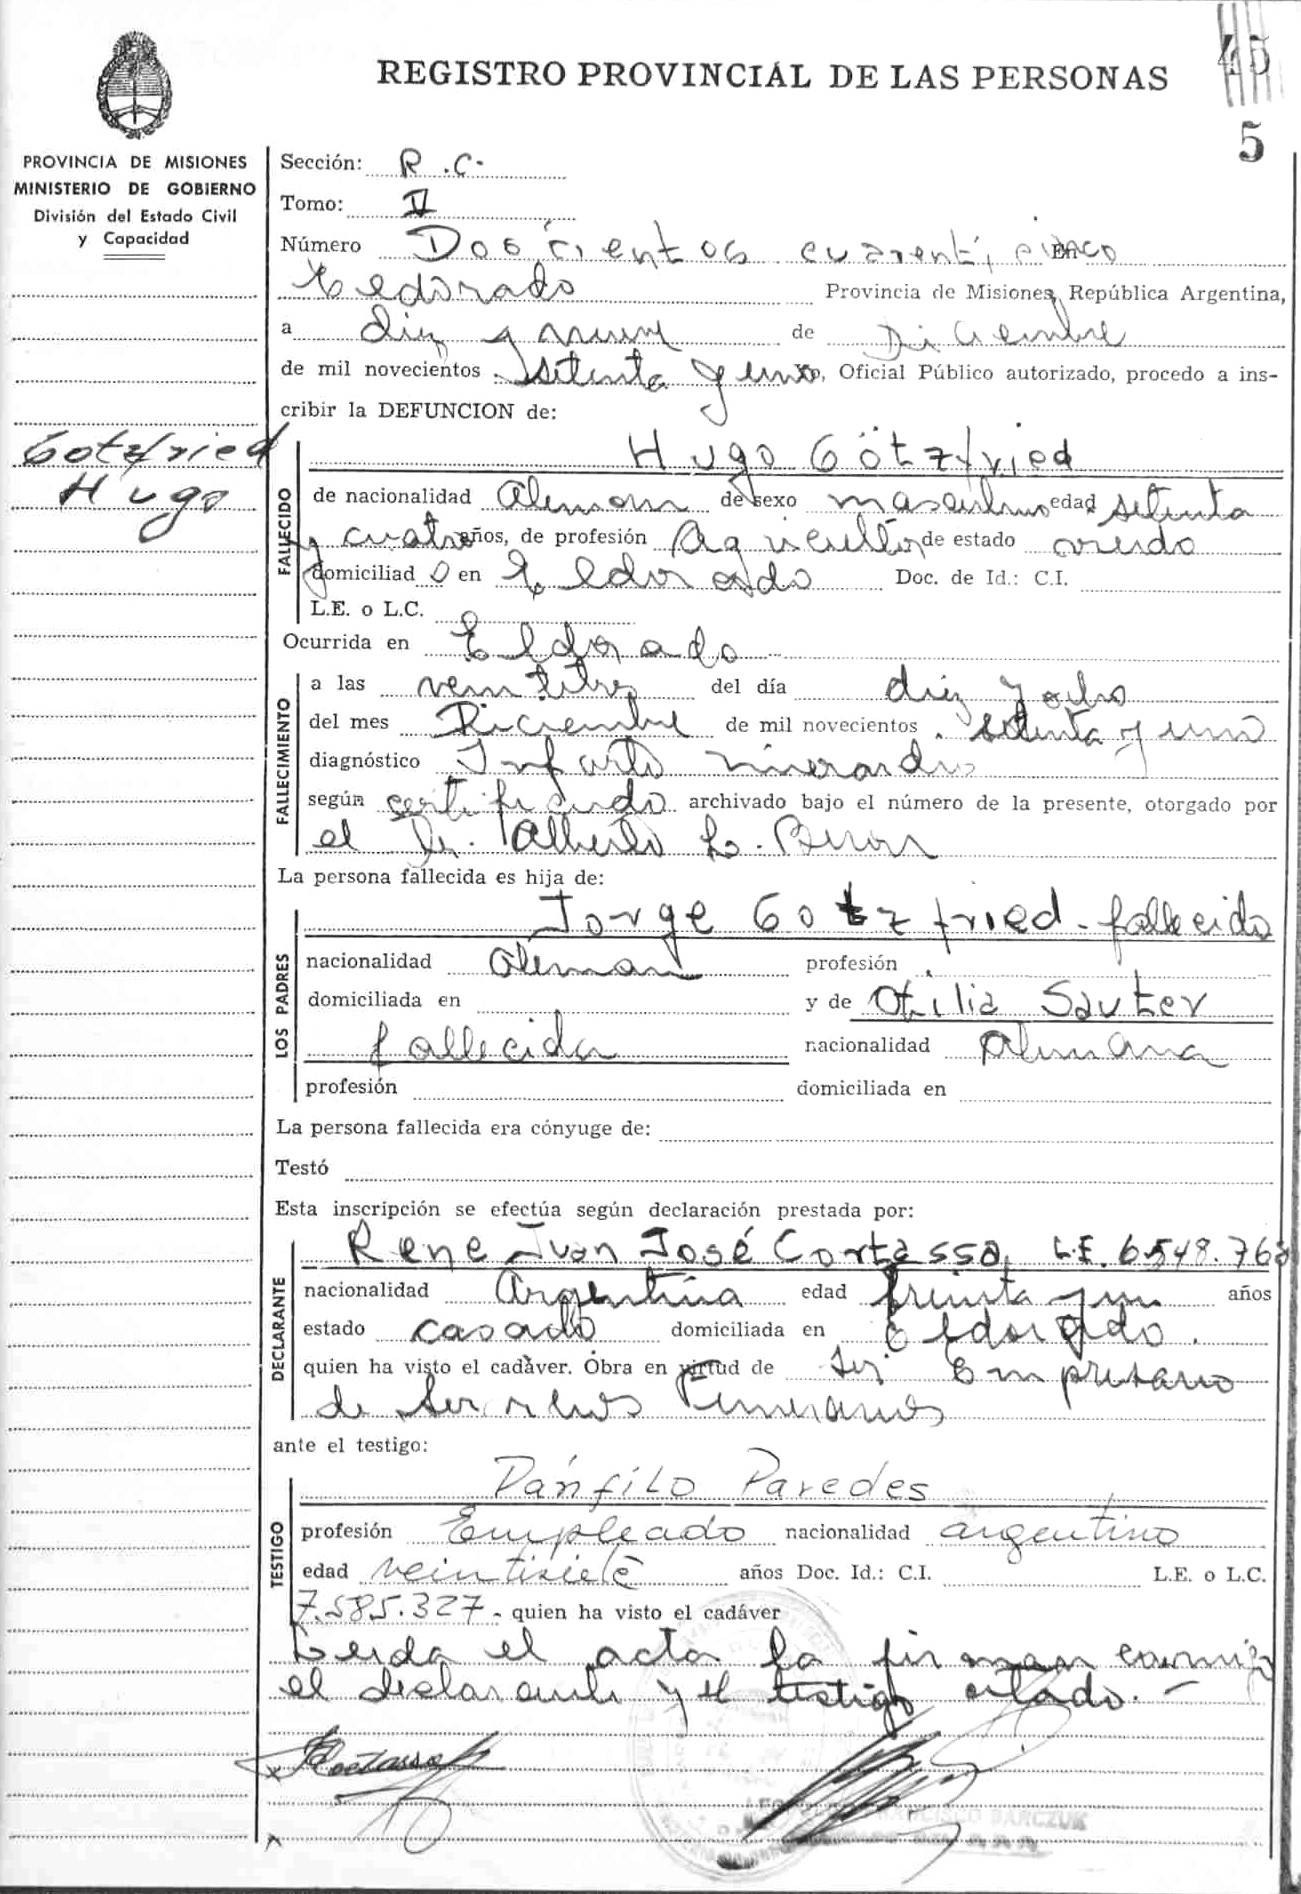 REGISTRO PROVINCIAL DE LAS PERSONAS
45
5
PROVINCIA DE MISIONES
MINISTERIO DE GOBIERNO
División del Estado Civil
y Capacidad
Gotzfried
Hugo
Sección: R.C.
Tomo: II
Número Doscientos cuarenti cinco
Eldorado Provincia de Misiones, República Argentina,
a diez y nueve de Diciembre
de mil novecientos setenta y uno, Oficial Público autorizado, procedo a ins-
cribir la DEFUNCION de:
FALLECIDO
Hugo Götzfried
de nacionalidad Aleman de sexo masculino edad setenta
y cuatro años, de profesión Agricultor de estado viudo
domiciliado en Eldorado Doc. de Id.: C.I.
L.E. o L.C.
Ocurrida en Eldorado
FALLECIMIENTO
a las veintitres del día diez y ocho
del mes Diciembre de mil novecientos setenta y uno
diagnóstico Infarto miocardio
según certificado archivado bajo el número de la presente, otorgado por
el Dr. Alberto L.
La persona fallecida es hija de:
LOS PADRES
Jorge Gotzfried - fallecido
nacionalidad Aleman profesión
domiciliada en y de Otilia Sauter
fallecida nacionalidad Alemana
profesión domiciliada en
La persona fallecida era cónyuge de:
Testó
Esta inscripción se efectúa según declaración prestada por:
DECLARANTE
Rene Juan José Cortassa, L.E. 6.548.768
nacionalidad Argentina edad treinta y un años
estado casado domiciliada en Eldorado.
quien ha visto el cadáver. Obra en virtud de ser Empresario
de Servicios Funerarios
ante el testigo:
TESTIGO
Pánfilo Paredes
profesión Empleado nacionalidad argentino
edad veintisiete años Doc. Id.: C.I. L.E. o L.C.
7.585.327.- quien ha visto el cadáver
Leida el acta la firman conmigo
el declarante y el testigo citado.-
FRANCISCO BARCZUK